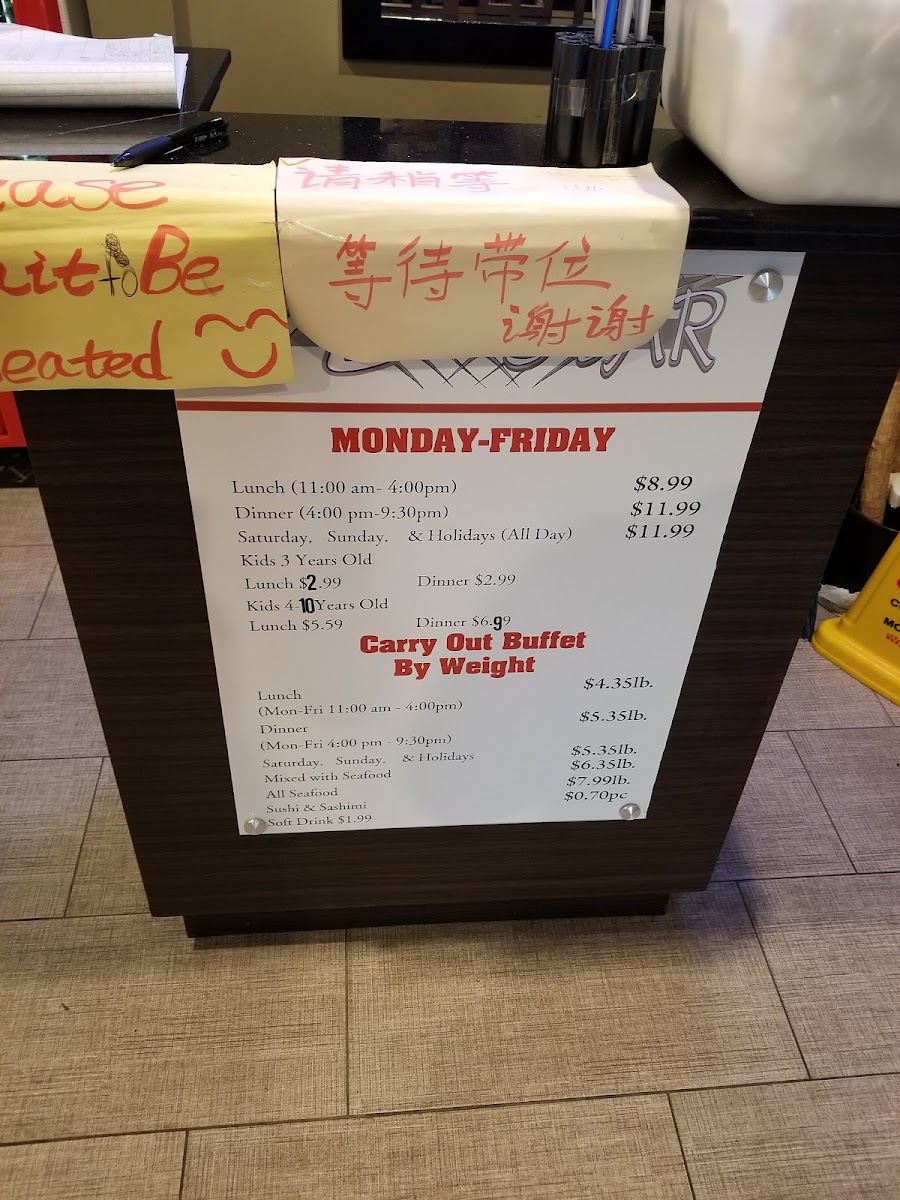 ease
ait to Be
eated
请稍等
等待带位
谢谢
AR
MONDAY-FRIDAY
Lunch (11:00 am- 4:00pm) $8.99
Dinner (4:00 pm-9:30pm) $11.99
Saturday, Sunday, & Holidays (All Day) $11.99
Kids 3 Years Old
Lunch $2.99 Dinner $2.99
Kids 4-10 Years Old
Lunch $5.59 Dinner $6.99
Carry Out Buffet
By Weight
Lunch $4.35lb.
(Mon-Fri 11:00 am - 4:00pm)
Dinner $5.35lb.
(Mon-Fri 4:00 pm - 9:30pm)
Saturday, Sunday, & Holidays $5.35lb.
Mixed with Seafood $6.35lb.
All Seafood $7.99lb.
Sushi & Sashimi $0.70pc
Soft Drink $1.99